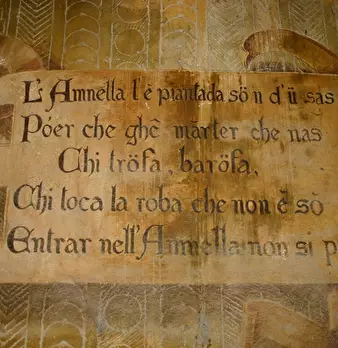 L'Amnella l'é piantada sö n d'ü sas
Póer che ghẽ mãrter che nas
Chi tröfa, baröfa,
Chi toca la roba che non ẽ sõ
Entrar nell'Amnella non si p